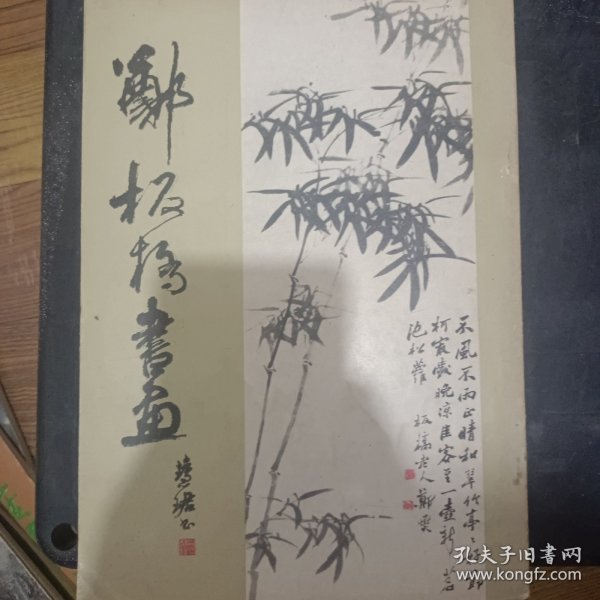 鄭板橋書画
慧珺书
不風不雨正晴和翠竹亭〻好節
柯最愛晚涼佳客至一壺新茗
泡松蘿 板橋老人鄭燮
孔夫子旧书网
www.kongfz.com